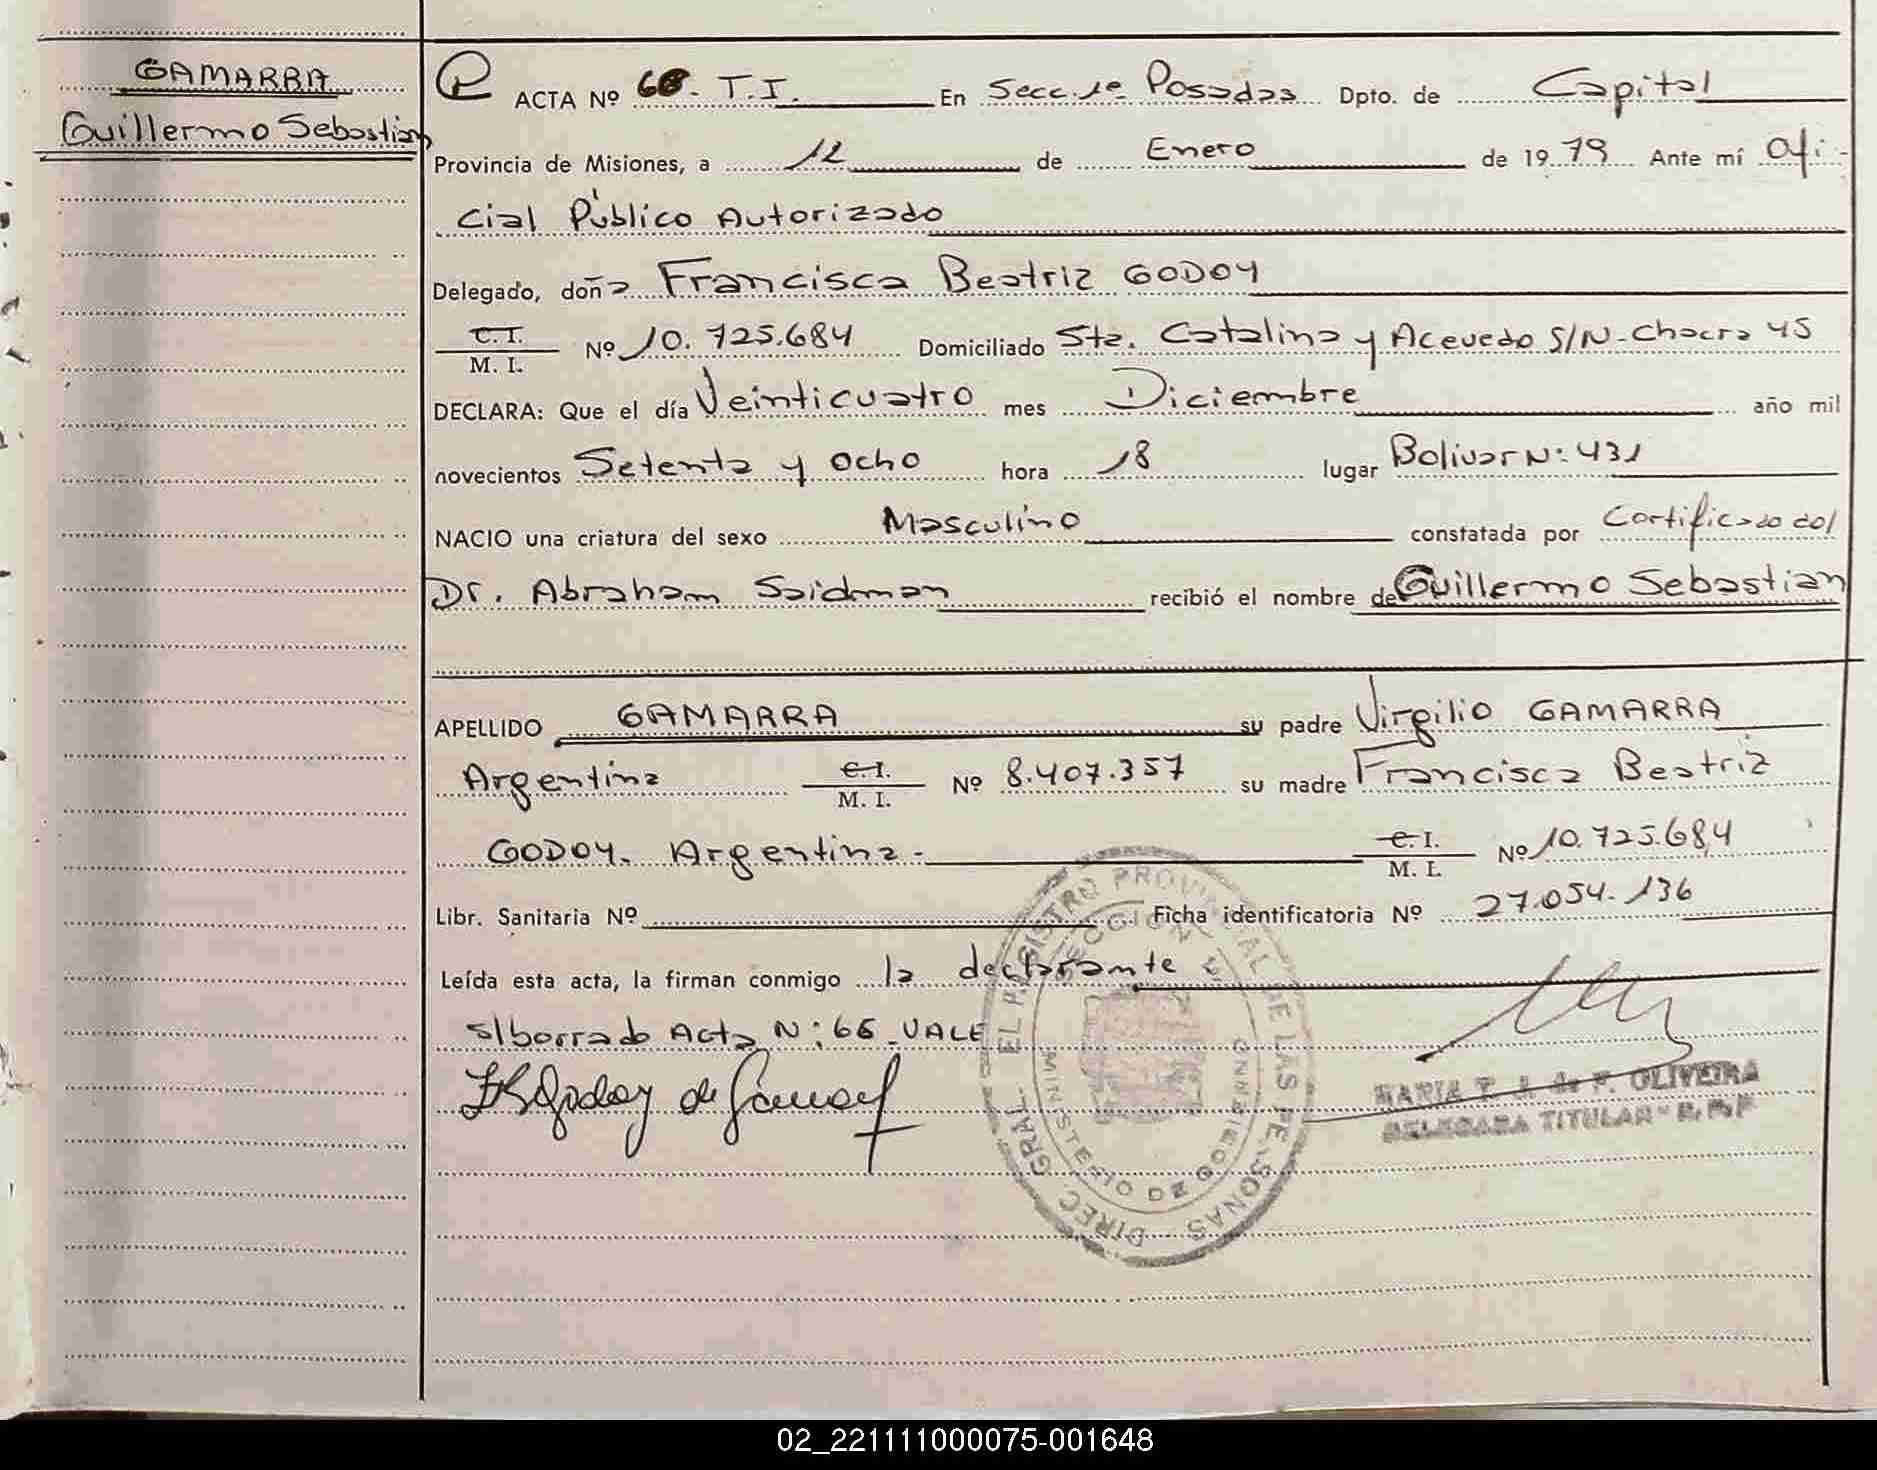 GAMARRA
Guillermo Sebastian
ACTA Nº 66. T.I. En Secc. 1ª Posadas Dpto. de Capital
Provincia de Misiones, a 12 de Enero de 1979 Ante mí Ofi-
cial Público Autorizado
Delegado, doña Francisca Beatriz GODOY
C.I.
M. I. Nº 10.725.684 Domiciliado Sta. Catalina y Acevedo S/N-Chacra 45
DECLARA: Que el día Veinticuatro mes Diciembre año mil
novecientos Setenta y ocho hora 18 lugar Bolivar N: 431
NACIO una criatura del sexo Masculino constatada por Certificado del
Dr. Abraham Saidman recibió el nombre de Guillermo Sebastian
APELLIDO GAMARRA su padre Virgilio GAMARRA
Argentina C.I. M. I. Nº 8.407.357 su madre Francisca Beatriz
GODOY. Argentina.- C.I. M. I. Nº 10.725.684
Libr. Sanitaria Nº Ficha identificatoria Nº 27.054.136
Leída esta acta, la firman conmigo la declarante
s/borrado Acta N: 66 VALE
Godoy de
MARIA T. J. de F. OLIVEIRA
DELEGADA TITULAR - R.P.P
DIREC. GRAL. EL REGISTRO PROVINCIAL DE LAS PERSONAS
MINISTERIO DE GOBIERNO
02_221111000075-001648